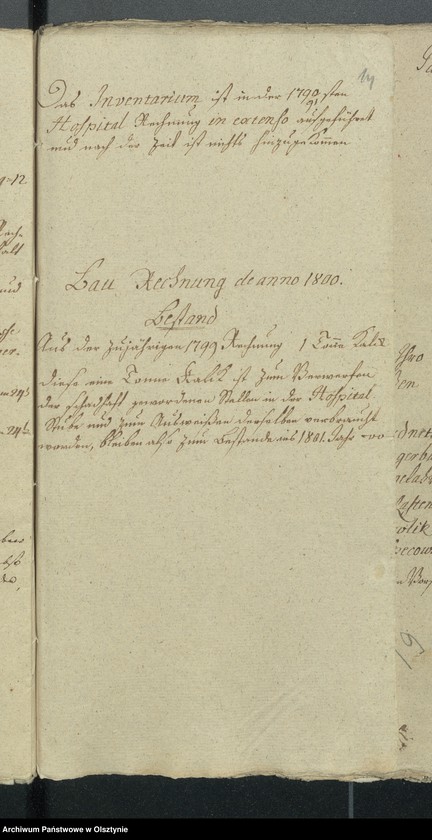 14
Das Inventarium ist in der 1790/91 sten
Hospital Rechnung in extenso aufgeführet
und nach der Zeit ist nichts hinzugekommen
Bau Rechnung de anno 1800.
Bestand
Aus der 1799 Rechnung 1 Tonne Kalk
Diese eine Tonne Kalk ist zum Verwerfen
der schadhaft gewordenen Stellen in der Hospital
Stube und zum Ausweißen derselben verbraucht
worden, bleiben also zum Bestande ins 1801. Jahr
19
Archiwum Państwowe w Olsztynie